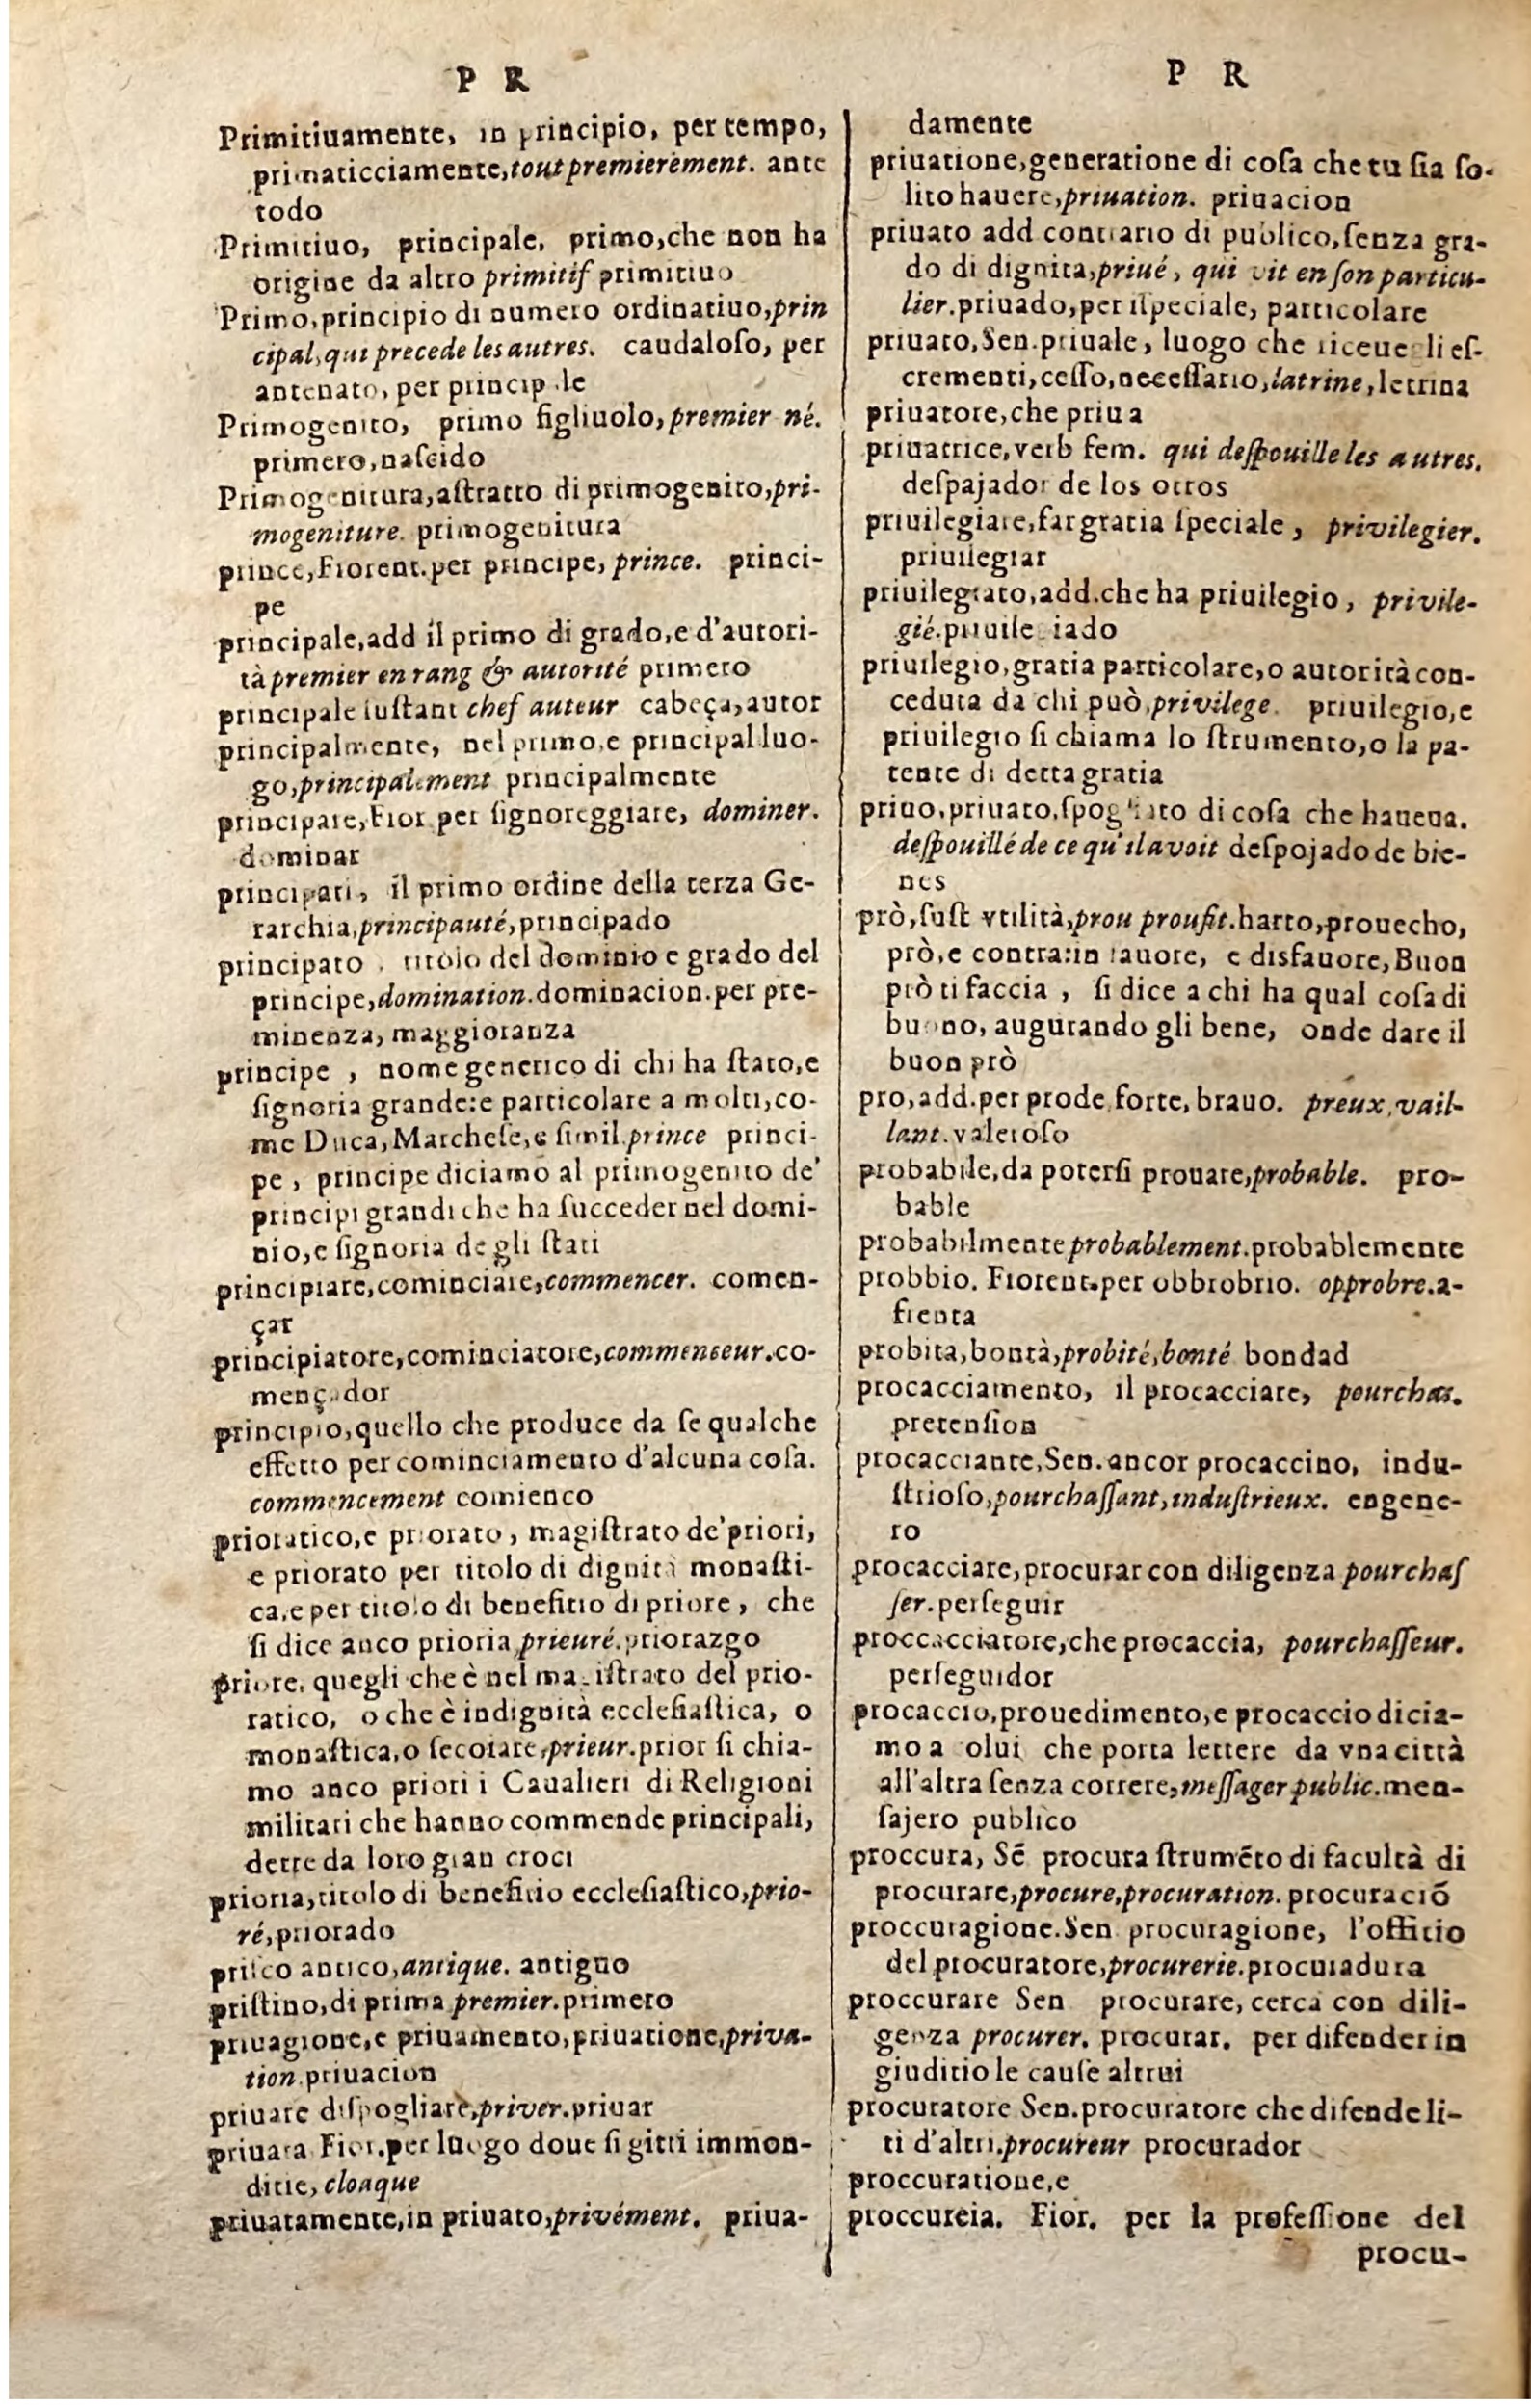 P R
Primitiuamente, in principio, per tempo,
primaticciamente,tout premierement. ante
todo
Primitiuo, principale, primo,che non ha
origine da altro primitif primitiuo
Primo,principio di numero ordinatiuo,prin
cipal,qui precede les autres. caudaloſo, per
antenato, per principale
Primogenito, primo figliuolo,premier né.
primero,naſcido
Primogenitura,aſtratto di primogenito,pri-
mogeniture. primogenitura
prince,Fiorent.per principe, prince. princi-
pe
principale,add il primo di grado,e d'autori-
tà premier en rang & autorité primero
principale ſuſtant chef auteur cabeça,autor
principalmente, nel primo,e principal luo-
go,principalement principalmente
principare,Fior per ſignoreggiare, dominer.
dominar
principati, il primo ordine della terza Ge-
rarchia,principauté,principado
principato, titolo del dominio e grado del
principe,domination.dominacion.per pre-
minenza, maggioranza
principe, nome generico di chi ha ſtato,e
ſignoria grande:e particolare a molti,co-
me Duca,Marcheſe,e ſimil.prince princi-
pe, principe diciamo al primogenito de'
principi grandi che ha ſucceder nel domi-
nio,e ſignoria de gli ſtati
principiare,cominciare,commencer. comen-
çar
principiatore,cominciatore,commenceur.co-
mençador
principio,quello che produce da ſe qualche
effetto per cominciamento d'alcuna coſa.
commencement comienco
prioratico,e priorato, magiſtrato de'priori,
e priorato per titolo di dignità monaſti-
ca,e per titolo di benefitio di priore, che
ſi dice anco prioria,prieuré.priorazgo
priore, quegli che è nel magiſtrato del prio-
ratico, o che è indignità eccleſiaſtica, o
monaſtica,o ſecolare,prieur.prior ſi chia-
mo anco priori i Caualieri di Religioni
militari che hanno commende principali,
dette da loro gran croci
prioria,titolo di benefitio eccleſiaſtico,prio-
ré,priorado
priſco antico,antique. antiguo
priſtino,di prima premier.primero
priuagione,e priuamento,priuatione,priva-
tion.priuacion
priuare diſpogliare,priver.priuar
priuata Fior.per luogo doue ſi gitti immon-
ditie, cloaque
priuatamente,in priuato,privément. priua-
P R
damente
priuatione,generatione di coſa che tu ſia ſo-
lito hauere,priuation. priuacion
priuato add contrario di publico,ſenza gra-
do di dignita,priué, qui vit en ſon particu-
lier.priuado,per iſpeciale, particolare
priuato,Sen.priuale, luogo che riceue gli eſ-
crementi,ceſſo,neceſſario,latrine,letrina
priuatore,che priua
priuatrice,verb fem. qui deſpouille les autres.
deſpajador de los otros
priuilegiare,far gratia ſpeciale, privilegier.
priuilegiar
priuilegiato,add.che ha priuilegio, privile-
gié.priuilegiado
priuilegio,gratia particolare,o autorità con-
ceduta da chi può,privilege. priuilegio,e
priuilegio ſi chiama lo ſtrumento,o la pa-
tente di detta gratia
priuo,priuato,ſpogliato di coſa che haueua.
deſpouillé de ce qu'il avoit deſpojado de bie-
nes
prò,ſuſt vtilità,prou proufit.harto,prouecho,
prò,e contra:in fauore, e disfauore,Buon
prò ti faccia, ſi dice a chi ha qual coſa di
buono, augurando gli bene, onde dare il
buon prò
pro,add.per prode forte, brauo. preux,vail-
lant.valeroſo
probabile,da poterſi prouare,probable. pro-
bable
probabilmente probablement.probablemente
probbio. Fiorent.per obbrobrio. opprobre.a-
frenta
probita,bontà,probité,bonté bondad
procacciamento, il procacciare, pourchas.
pretenſion
procacciante,Sen.ancor procaccino, indu-
ſtrioſo,pourchaſſant,induſtrieux. engene-
ro
procacciare,procurar con diligenza pourchaſ
ſer.perſeguir
proccacciatore,che procaccia, pourchaſſeur.
perſeguidor
procaccio,prouedimento,e procaccio dicia-
mo a olui che porta lettere da vna città
all'altra ſenza correre,meſſager public.men-
ſajero publico
proccura, Sē procura ſtrumēto di facultà di
procurare,procure,procuration. procuraciō
proccuragione.Sen procuragione, l'offitio
del procuratore,procurerie.procuradura
proccurare Sen procurare, cerca con dili-
genza procurer. procurar. per difender in
giuditio le cauſe altrui
procuratore Sen.procuratore che difende li-
ti d'altri.procureur procurador
proccuratione,e
proccureia. Fior. per la profeſſione del
procu-